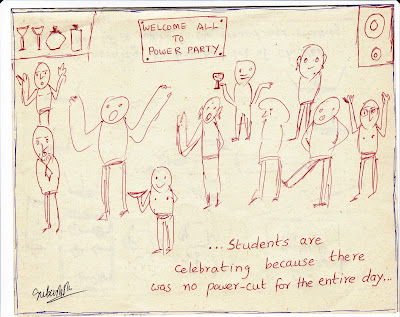 WELCOME ALL
TO
POWER PARTY
...Students are
celebrating because there
was no power-cut for the entire day...